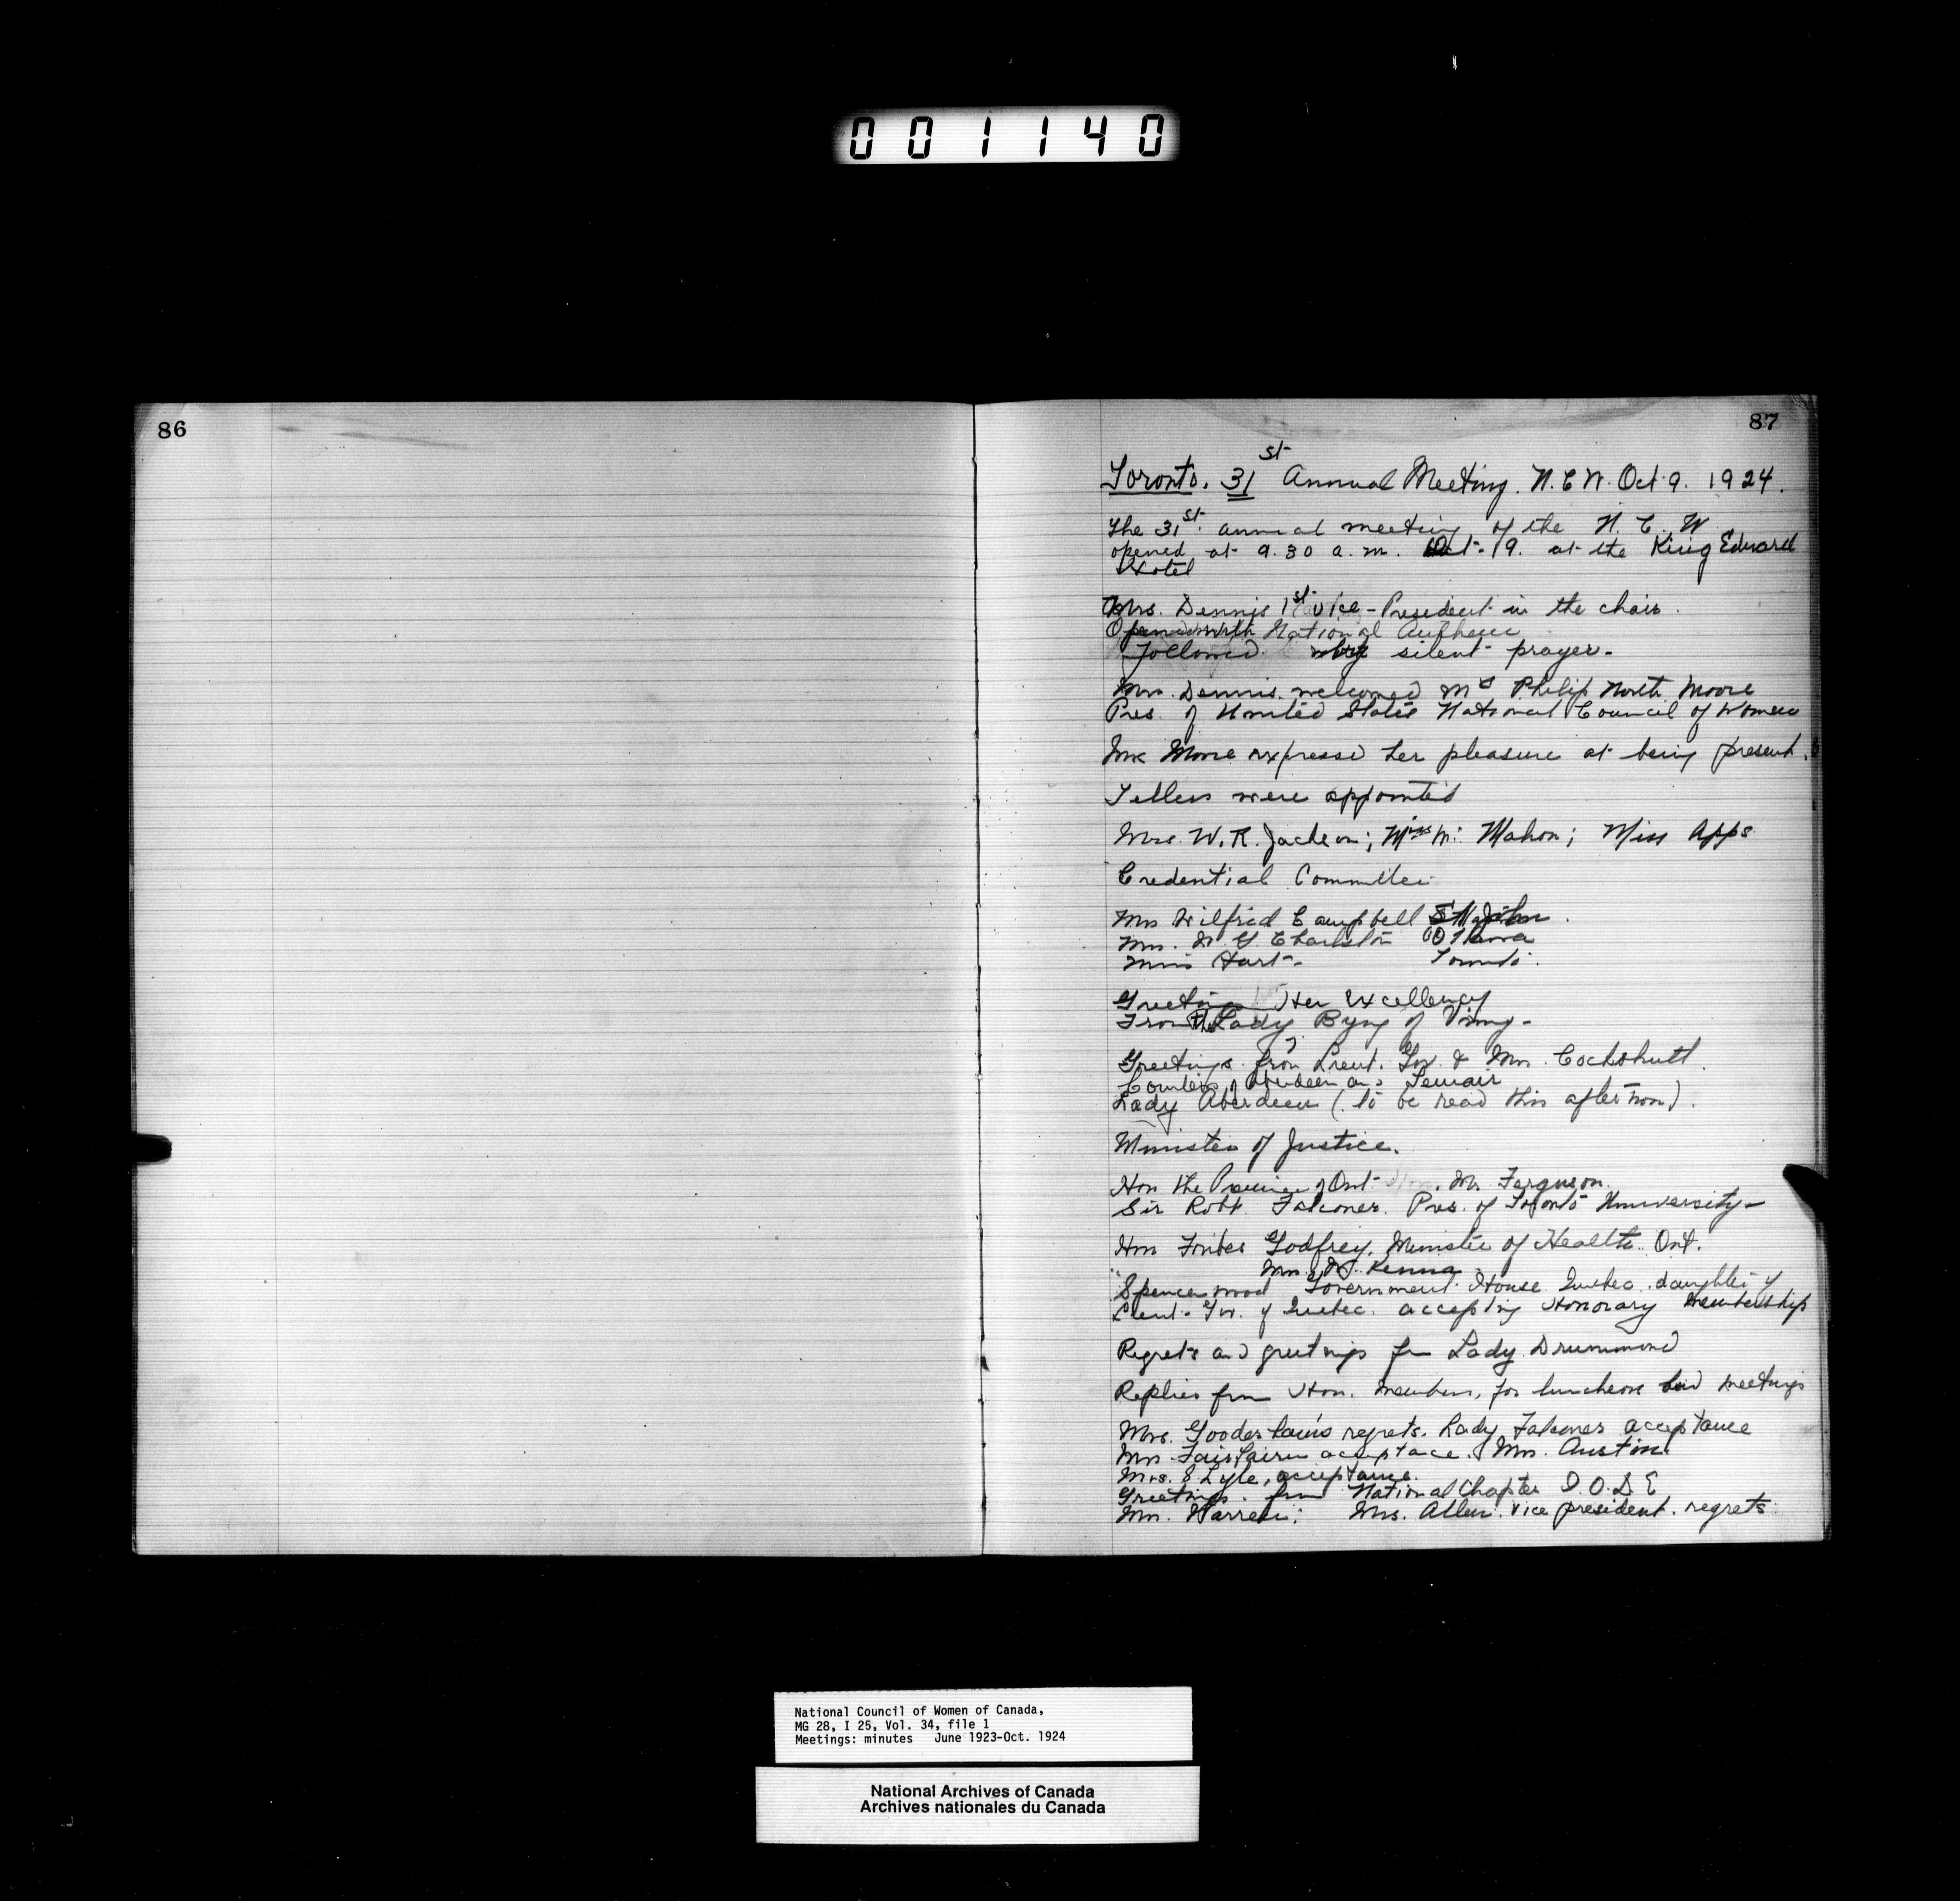 001140
86
87
Toronto. 31st Annual Meeting. N.C.W. Oct. 9. 1924.
The 31st. annual meeting of the N. C. W
opened at 9.30 a.m. Oct. 9. at the King Edward
Hotel
Mrs. Dennis 1st Vice-President in the chair.
Opened with National Anthem
followed by silent prayer.
Mrs. Dennis. welcomed Mrs Philip North Moore
Pres. of United States National Council of Women
Mrs Moore expressed her pleasure at being present.
Tellers were appointed
Mrs. W. R. Jackson; Miss Mc Mahon; Miss Apps
Credential Committee
Mrs Wilfrid Campbell
Mrs. Charleston Ottawa
Miss Hart- Toronto.
Greetings Her Excellency
From The Lady Byng of Vimy-
Greetings from Lieut. Gov. & Mrs. Cockshutt.
Countess of Aberdeen and Temair
Lady Aberdeen (to be read this afternoon).
Minister of Justice.
Hon the Premier of Ont- Mr. Ferguson.
Sir Robt. Falconer. Pres. of Toronto University-
Hon Forbes Godfrey. Minister of Health. Ont.
Mrs. Kenna
Spencerwood Government House Quebec. daughter of
Lieut-Gov. of Quebec. accepting Honorary Membership
Regrets and greetings from Lady Drummond
Replies from Hon. Members, for luncheon and meetings
Mrs. Gooderham's regrets. Lady Falconer acceptance
Mrs. Fairbairn acceptance. Mrs. Austin.
Mrs. S Lyle, acceptance.
Greetings. from National Chapter I.O.D.E
Mrs. Warren; Mrs. Allen. Vice president. regrets.
National Council of Women of Canada,
MG 28, I 25, Vol. 34, file 1
Meetings: minutes June 1923-Oct. 1924
National Archives of Canada
Archives nationales du Canada